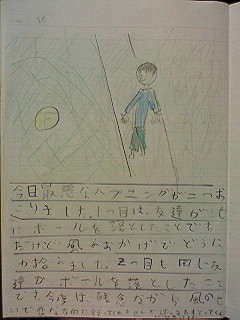 今日最悪なハプニングが二つお
こりました。1つ目は、友達が
にボールを落としたことです
だけど風のおかげでどうに
か拾らました。2つ目も同じ友
達がボールを落としたこと
です。今度は、残念ながら風のせ
いで